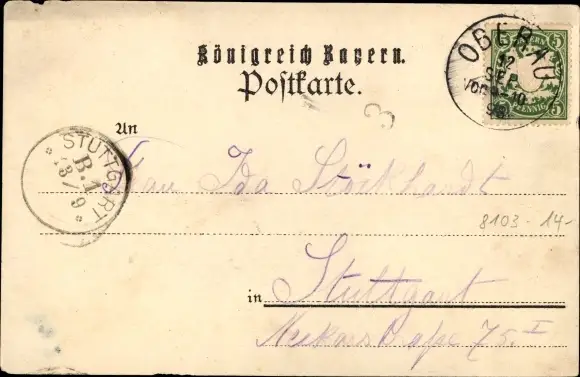 Königreich Bayern.
Postkarte.
OBERAU
12
SEP
5
PFENNIG
5
3
An
Frau Ida Stöckhardt
STUTTGART
B. 1
8103 - 14 -
in Stuttgart
Neckarstraße 75 I